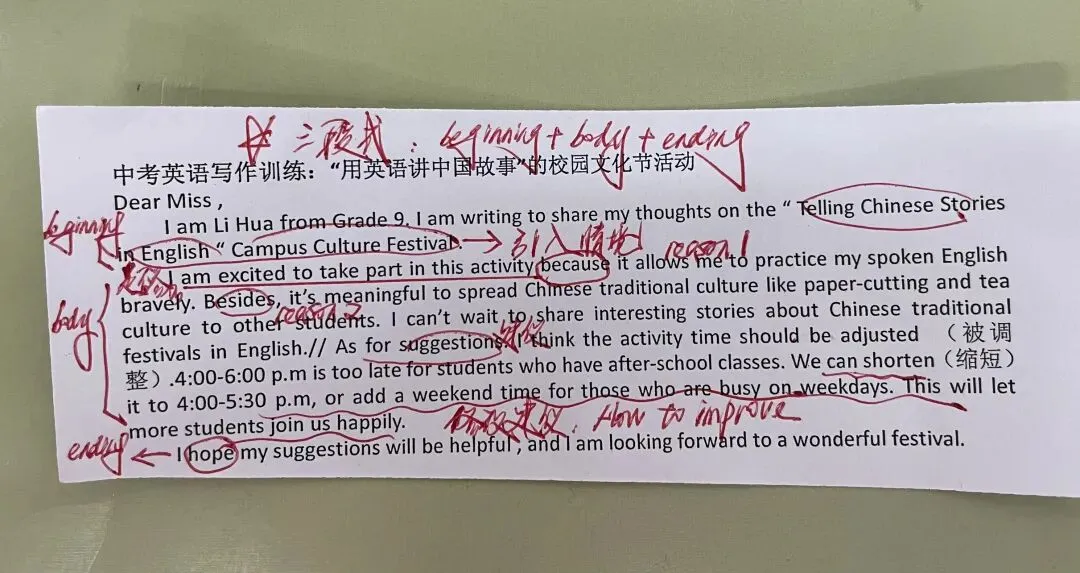 ☆ 三段式：beginning + body + ending
中考英语写作训练：“用英语讲中国故事”的校园文化节活动
Dear Miss ,
beginning
I am Li Hua from Grade 9. I am writing to share my thoughts on the “ Telling Chinese Stories
in English “ Campus Culture Festival. → 引入情境
reason 1
I am excited to take part in this activity because it allows me to practice my spoken English
bravely. Besides, it’s meaningful to spread Chinese traditional culture like paper-cutting and tea
body
reason 2
culture to other students. I can’t wait to share interesting stories about Chinese traditional
建议
festivals in English.// As for suggestions, I think the activity time should be adjusted （被调
整）.4:00-6:00 p.m is too late for students who have after-school classes. We can shorten（缩短）
it to 4:00-5:30 p.m, or add a weekend time for those who are busy on weekdays. This will let
more students join us happily.
建议. How to improve
ending ← I hope my suggestions will be helpful , and I am looking forward to a wonderful festival.